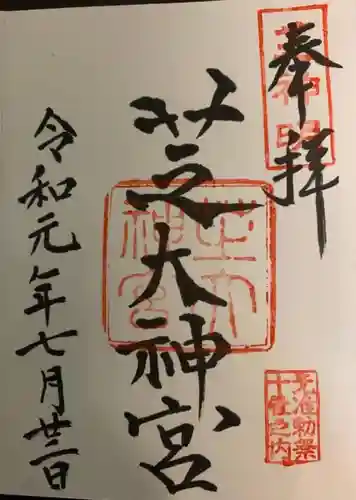 奉拝
芝大神宮
令和元年七月廿二日
芝神明
芝大神宮
元准勅祭
十社之内